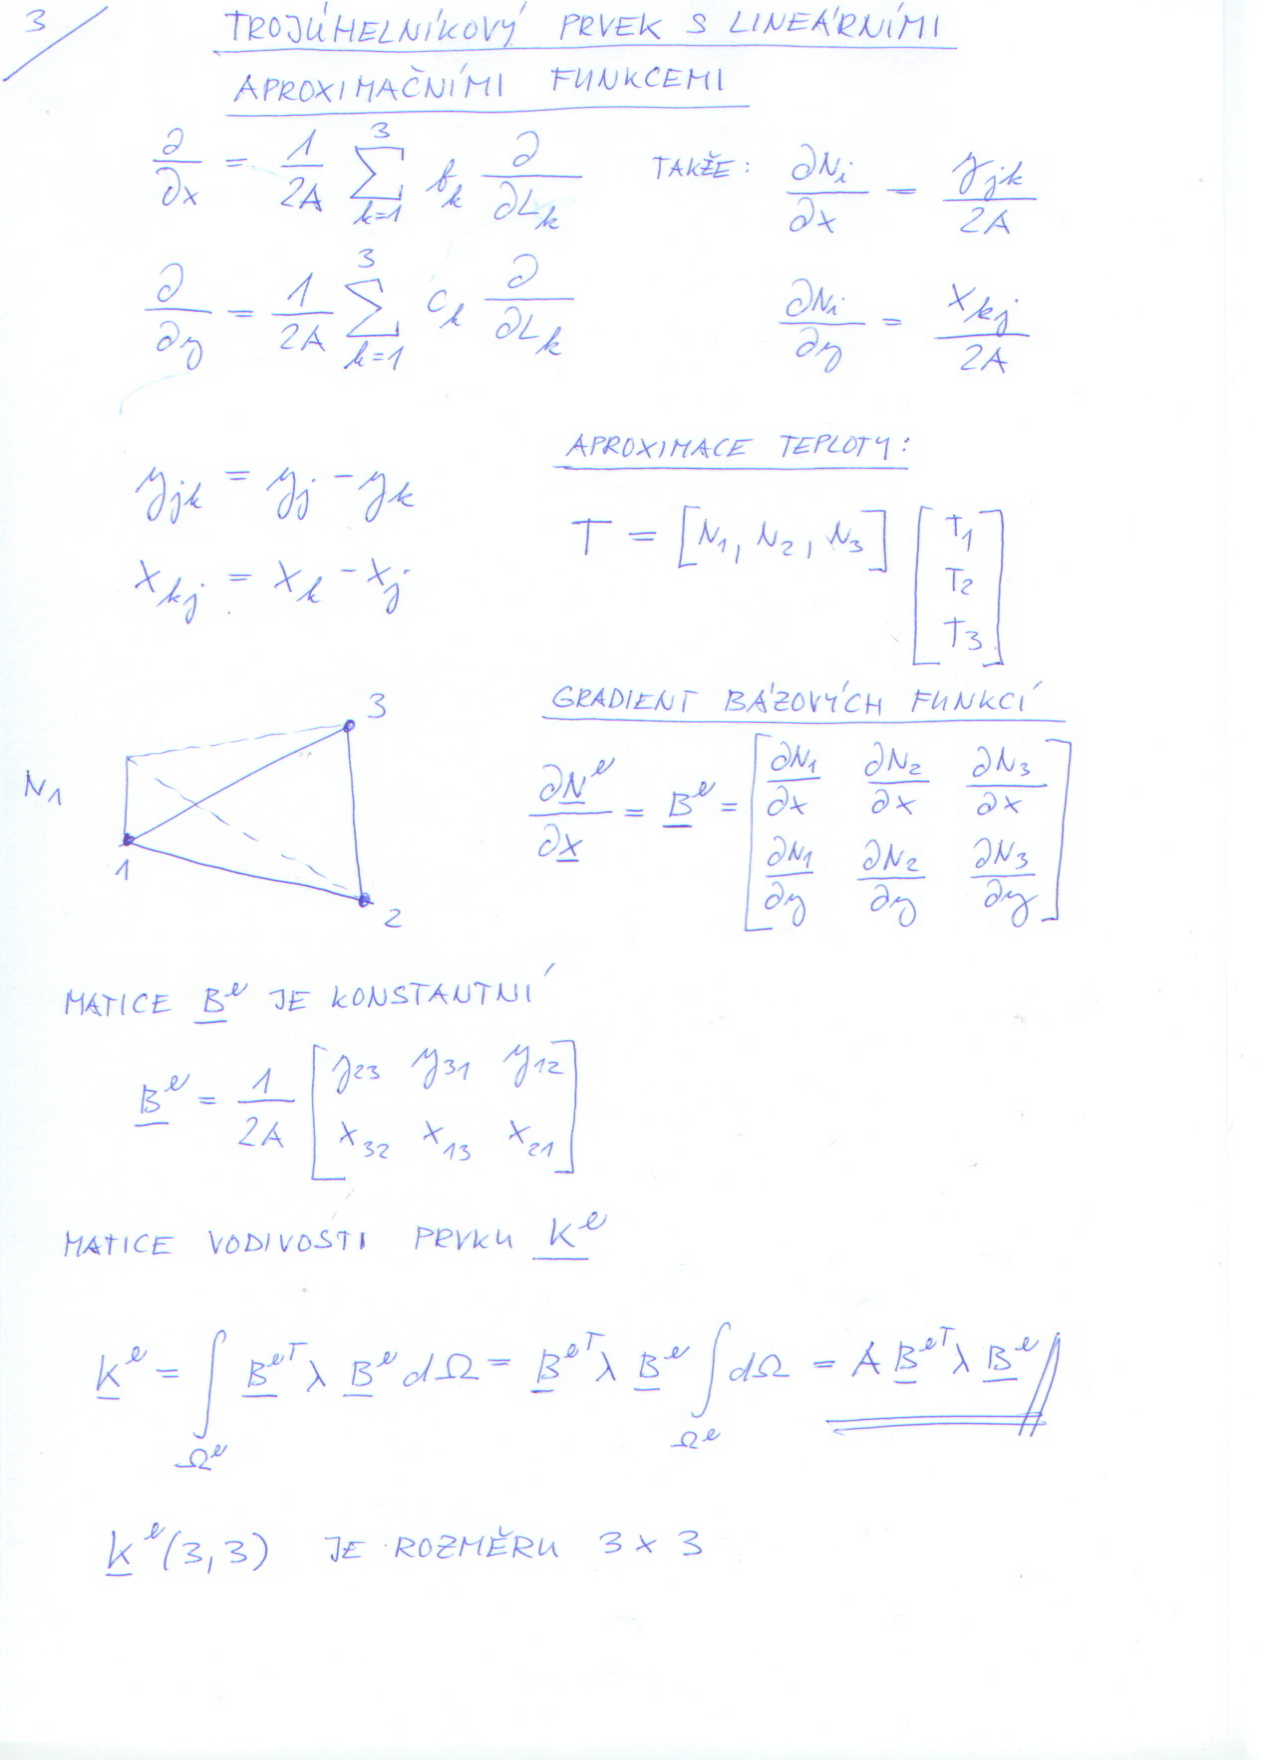 3
TROJÚHELNÍKOVÝ PRVEK S LINEÁRNÍMI
APROXIMAČNÍMI FUNKCEMI
∂/∂x = 1/2A ∑_{k=1}^{3} b_k ∂/∂L_k TAKŽE: ∂N_i/∂x = y_jk/2A
∂/∂y = 1/2A ∑_{k=1}^{3} c_k ∂/∂L_k ∂N_i/∂y = x_kj/2A
y_jk = y_j − y_k
x_kj = x_k − x_j
APROXIMACE TEPLOTY:
T = [N_1, N_2, N_3] [T_1 T_2 T_3]
3
N_1
1
2
GRADIENT BÁZOVÝCH FUNKCÍ
∂N^e/∂x = B^e = [∂N_1/∂x ∂N_2/∂x ∂N_3/∂x
∂N_1/∂y ∂N_2/∂y ∂N_3/∂y]
MATICE B^e JE KONSTANTNÍ
B^e = 1/2A [y_23 y_31 y_12
x_32 x_13 x_21]
MATICE VODIVOSTI PRVKU K^e
K^e = ∫_{Ω^e} B^{eT} λ B^e dΩ = B^{eT} λ B^e ∫_{Ω^e} dΩ = A B^{eT} λ B^e
K^e(3,3) JE ROZMĚRU 3 x 3